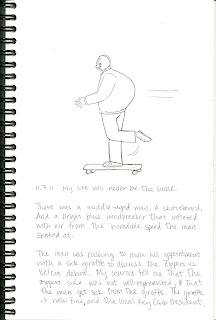 11.7.11 My life will never be the same.
There was a middle-aged man. A skateboard.
And a bright blue windbreaker that inflated
with air from the incredible speed the man
skated at.
The man was rushing to make his appointment
with a sick giraffe to discuss the zippers vs.
velcro debate. My sources tell me that the
zippers side was not well-represented, & that
the man got sick from the giraffe. The giraffe
is now fine, and the local Key Club President.